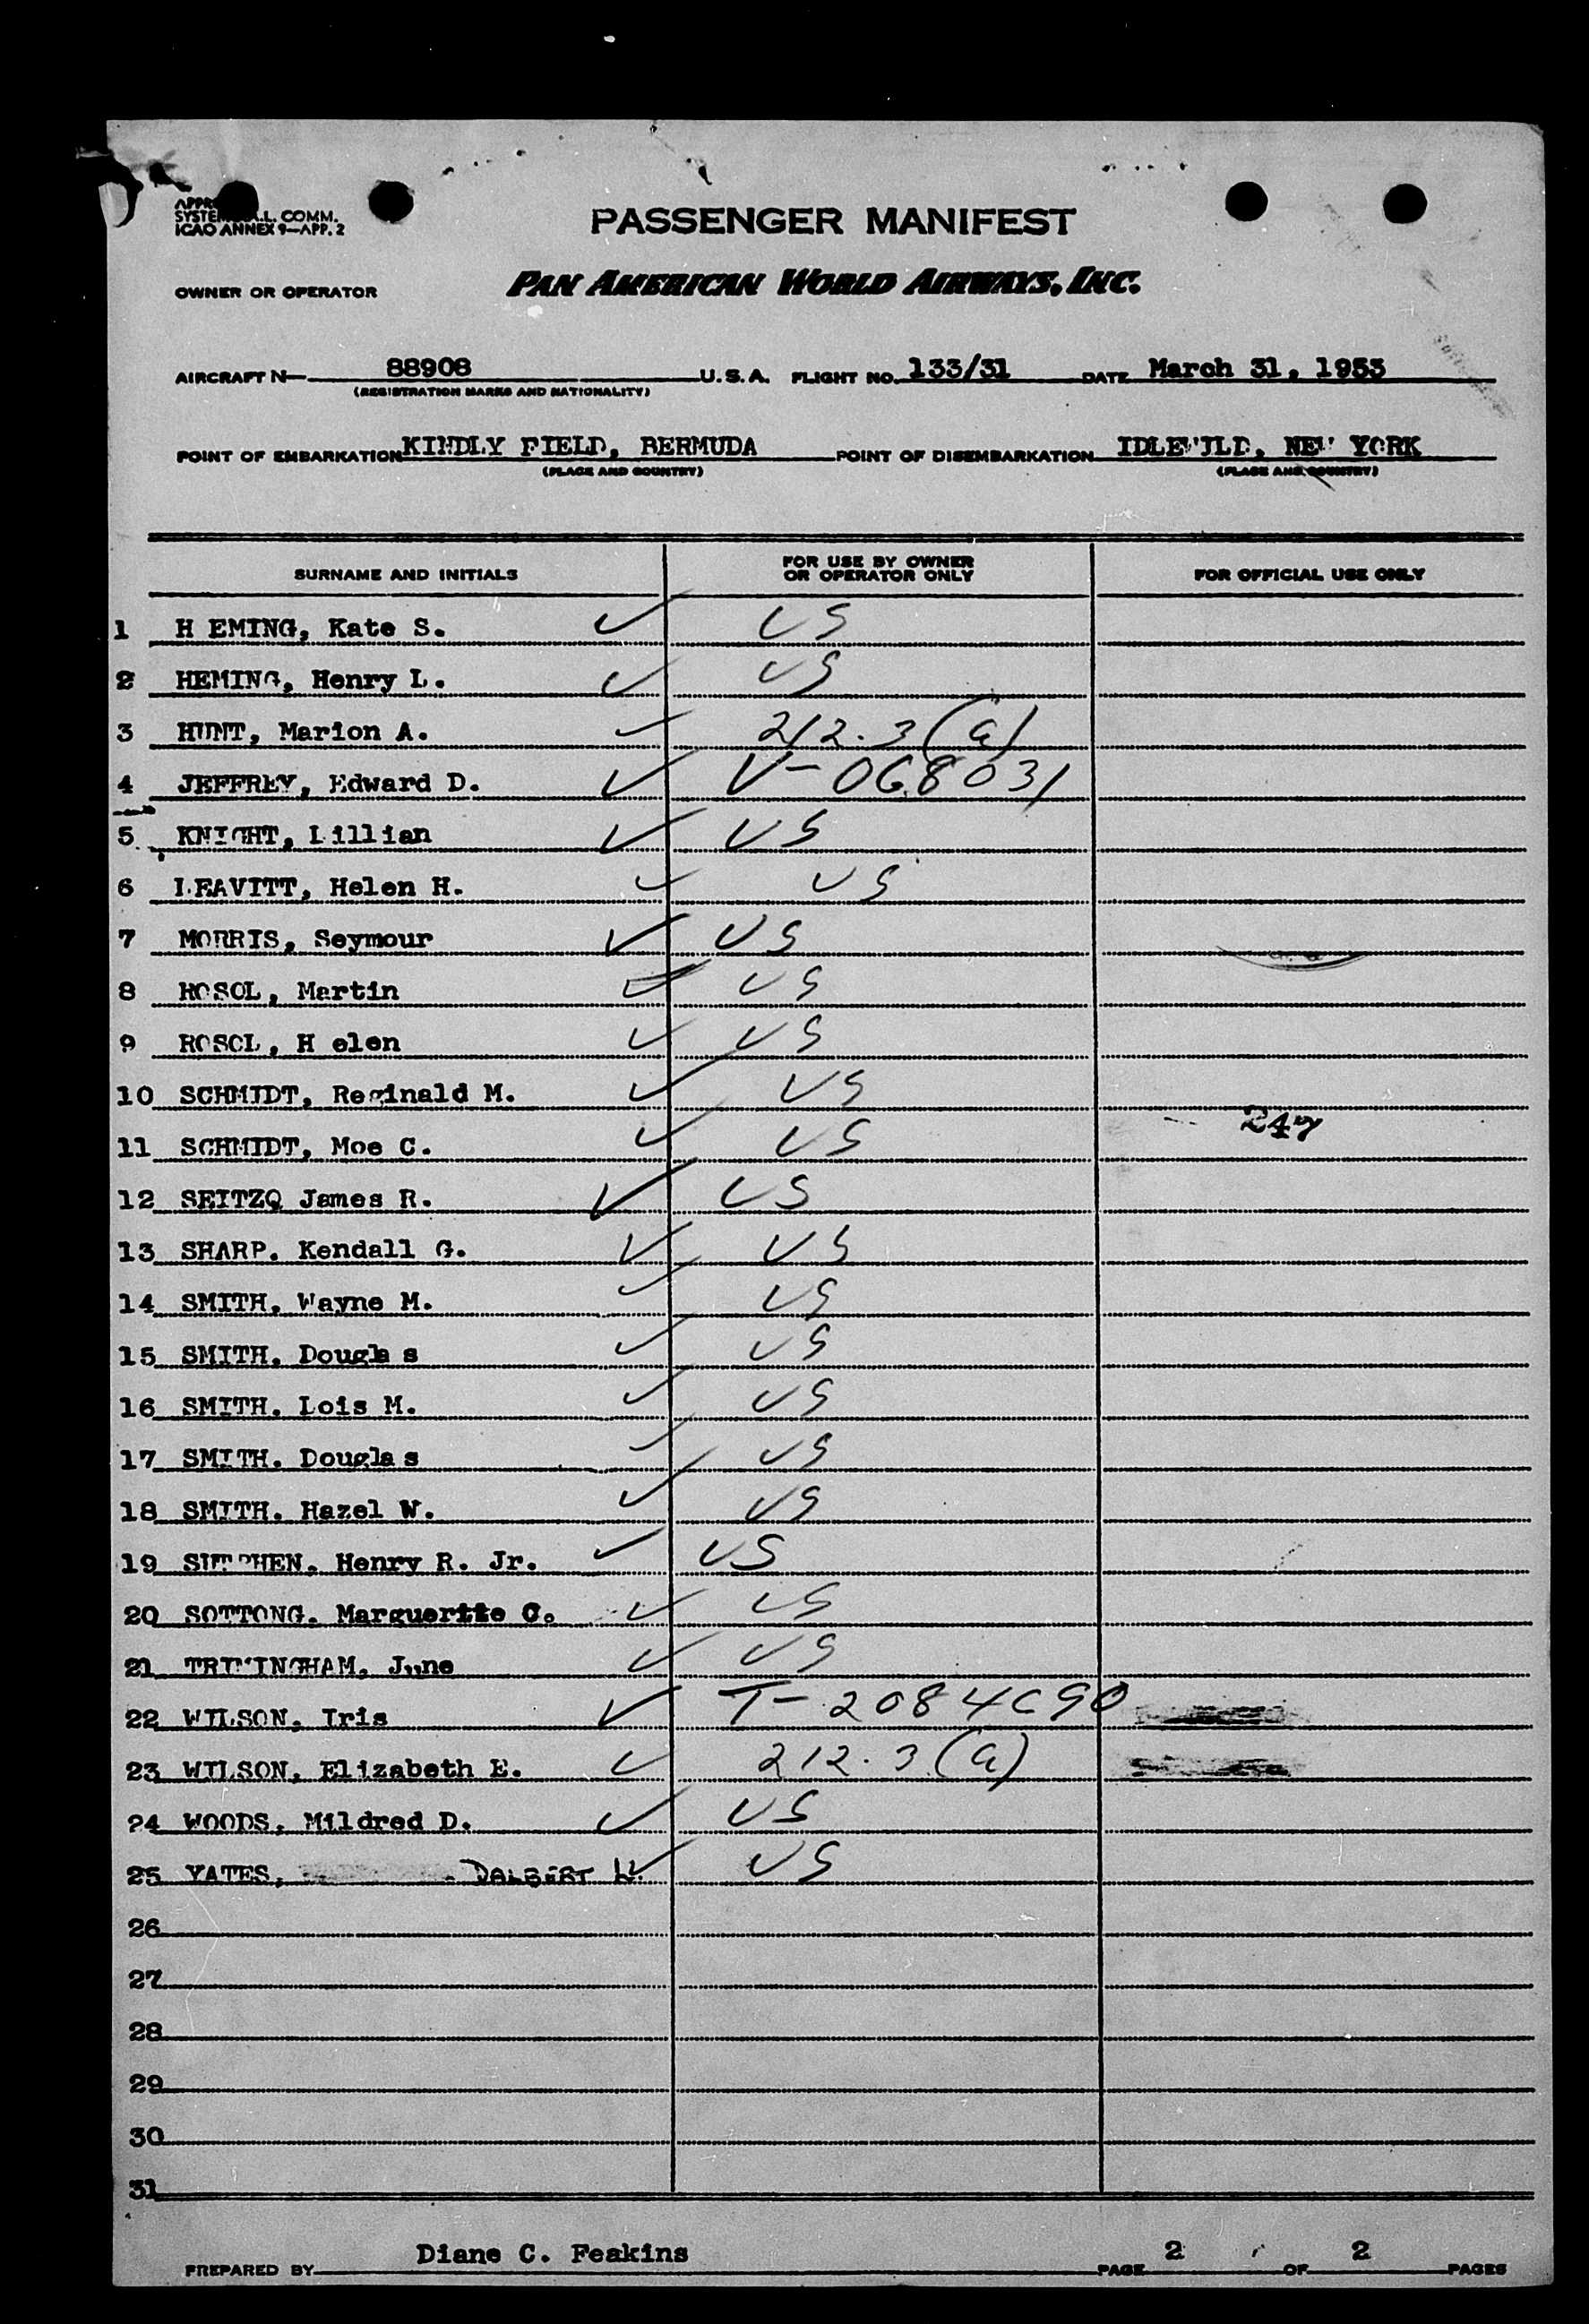 SYSTEM A.L. COMM.
ICAO ANNEX 9—APP. 2
PASSENGER MANIFEST
OWNER OR OPERATOR PAN AMERICAN WORLD AIRWAYS, INC.
AIRCRAFT N— 88908 U.S.A. FLIGHT NO. 133/31 DATE March 31, 1953
(REGISTRATION MARKS AND NATIONALITY)
POINT OF EMBARKATION KINDLY FIELD, BERMUDA POINT OF DISEMBARKATION IDLEWILD, NEW YORK
(PLACE AND COUNTRY) (PLACE AND COUNTRY)
SURNAME AND INITIALS FOR USE BY OWNER OR OPERATOR ONLY FOR OFFICIAL USE ONLY
1 H EMING, Kate S. ✓ US
2 HEMING, Henry L. ✓ US
3 HUNT, Marion A. ✓ 212.3(a)
4 JEFFREY, Edward D. ✓ V-068031
5 KNIGHT, Lillian ✓ US
6 LEAVITT, Helen H. ✓ US
7 MORRIS, Seymour ✓ US
8 ROSOL, Martin ✓ US
9 ROSOL, H elen ✓ US
10 SCHMIDT, Reginald M. ✓ US
11 SCHMIDT, Moe C. ✓ US
12 SEITZQ James R. ✓ US
13 SHARP. Kendall G. ✓ US
14 SMITH, Wayne M. ✓ US
15 SMITH, Dougla s ✓ US
16 SMITH, Lois M. ✓ US
17 SMITH. Dougla s ✓ US
18 SMITH. Hazel W. ✓ US
19 Henry R. Jr. ✓ US
20 SOTTONG. Marguerite C. ✓ US
21 TRIMINGHAM, June ✓ US
22 WILSON, Iris ✓ T-2084690
23 WILSON, Elizabeth E. ✓ 212.3(a)
24 WOODS, Mildred D. ✓ US
25 YATES, DALBERT W. ✓ US
26
27
28
29
30
31
PREPARED BY Diane C. Feakins PAGE 2 OF 2 PAGES